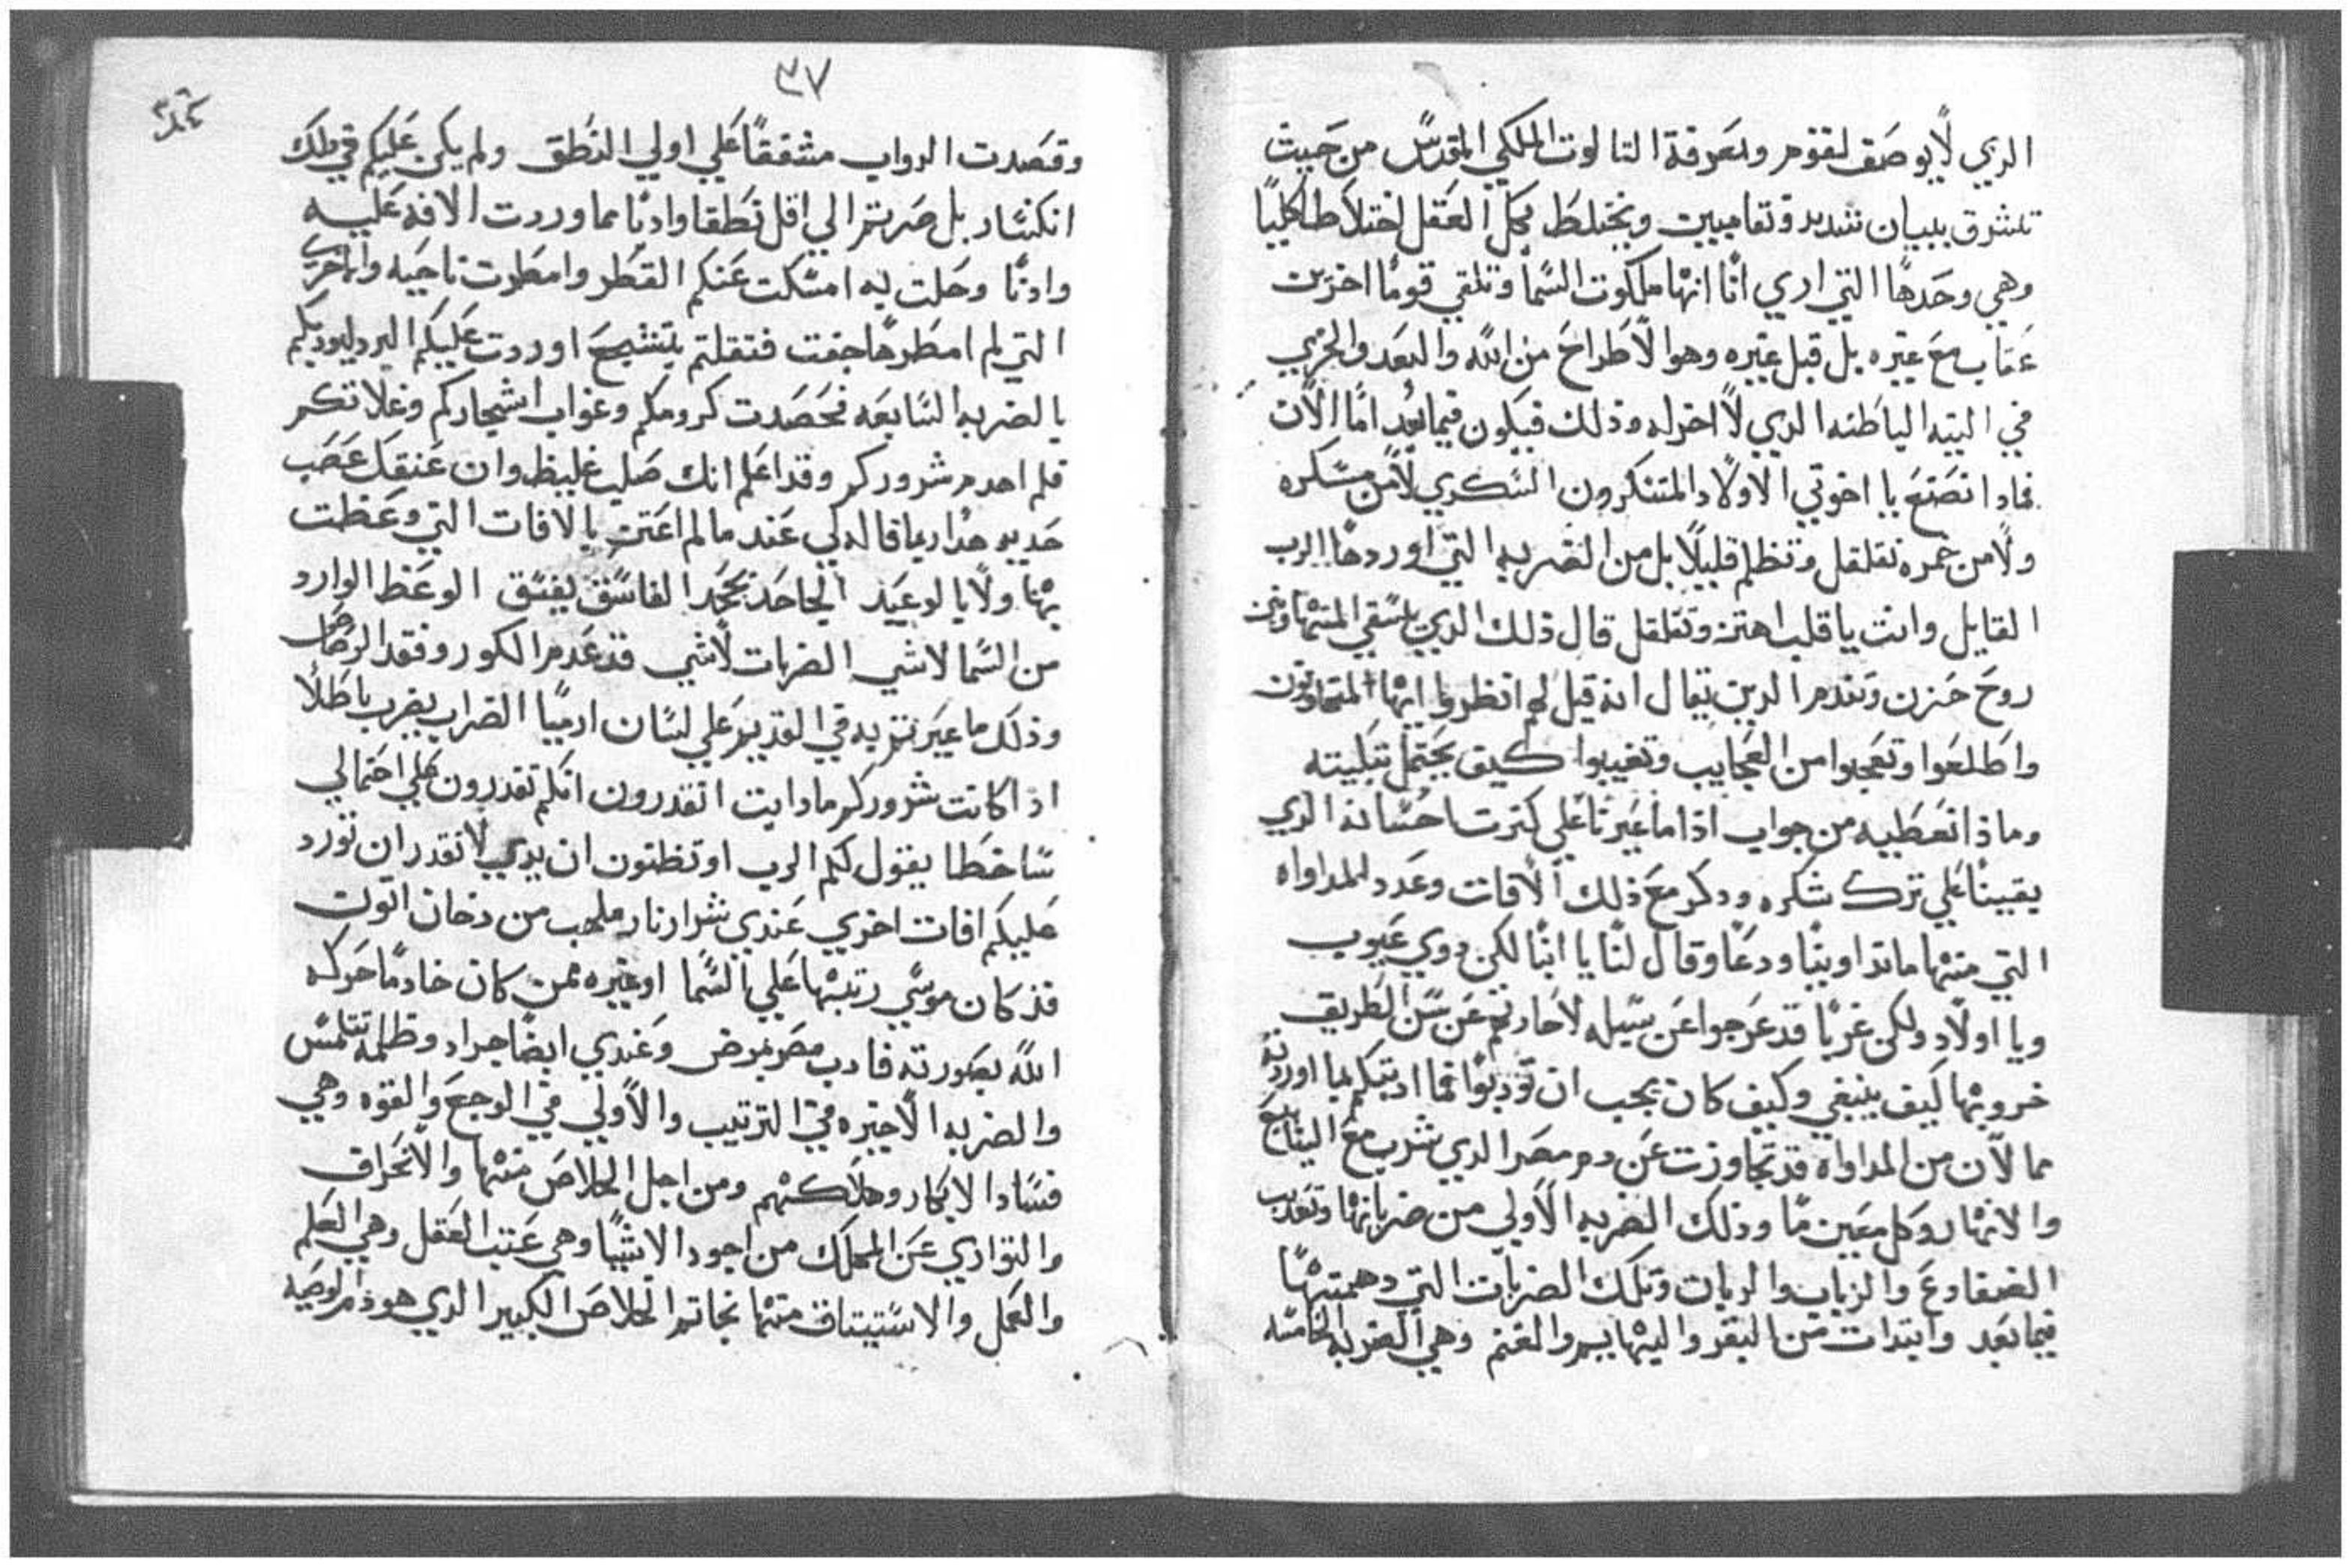 الدي لا يوصف لقوم ومعرفة التالوت الملكي المقدس من حيت
تشرق ببيان شديد ونقا مبين وتختلط بكل العقل اختلاطا كليا
وهي وحدها التي اري انا انها ملكوت السما وتلقي قوما اخرين
عقاب مع غيره بل قبل غيره وهو الاطراح من الله والبعد والخزي
في النيه الباطنه الدي لا اخر له وذلك فيكون فيما بعد اما الان
فمادا نصنع يا اخوتي الاولاد المتنكرون السكري لا من مسكره
ولا من خمره تقلقل وتظلم قليلا بل من الضربه التي اوردها الرب
القايل وانت يا قلب اهتز وتقلقل قال ذلك الدي يسقي المتهاونين
روح حزن وتندم الدين يقال انه قيل لهم انظروا ايها المتهاونون
واطلعوا وتعجبوا من العجايب وتغيبوا كيف يحتمل تبكيته
وماذا نعطيه من جواب اذا ما عيرنا علي كترت احسانه الدي
يقينا علي ترك شكره ودكر مع ذلك الافات وعدد المداواه
التي منها ما تداوينا ودعا وقال لنا يا ابنا لكن دوي عيوب
ويا اولاد ولكن غربا قد عرجوا عن سبيله لاحادتهم عن سنن الطريق
خروبها كيف ينبغي وكيف كان يجب ان تودبوا فما ادبتكم بما اوردته
مما لان من المداواه قد تجاوزت عن دم مصر الدي شرب مع الينابيع
والانهار وكل معين ما وذلك الضربه الاولي من ضرباتها وتعديت
الضفادع والزباب والدبان وتلك الضربات التي دهمتها
فيما بعد وابتدات من البقر والبهايم والغنم وهي الضربه الخامسه
٣٧
وقصدت الدواب مشفقا علي اولي النطق ولم يكن عليكم في ذلك
انكسار بل صرتم الي اقل نطقا وادنا مما وردت الافه عليه
وادنا وحلت به امسكت عنكم القطر وامطرت ناحيه والاخري
التي لم امطرها جفت فتقلتم بتشيع اوردت عليكم البرد ليودبكم
بالضربه السابعه فحصدت كرومكم وغواب اشجاركم وغلاتكم
فلم احدم شروركم وقد اعلم انك صلب غليظ وان عنقك عصب
حديد هذا ربما قاله لي عند ما لم اعتبر بالافات التي وعظت
بها ولا بالوعيد الجاحد يجحد الفاسق يفسق الوعظ الوارد
من السما لا شي الضربات لا شي قد عدم الكور وفقد الرصاص
وذلك ما عيرتم به في القديم علي لسان ارميا الضراب يضرب باطلا
اذا كانت شروركم ما دابت اتقدرون انكم تقدرون علي احتمالي
ساخطا يقول لكم الرب او تظنون ان يدي لا تقدر ان تورد
عليكم افات اخري عندي شرار نار ملهب من دخان اتون
قد كان موسي رتبها علي السما او غيره ممن كان خادما حركه
الله بصورته فادب مصر بمرض وعندي ايضا جراد وظلمه تتلمس
والضربه الاخيره في الترتيب والاولي في الوجع والقوه وهي
فساد الابكار وهلاكهم ومن اجل الخلاص منها والانحراف
والتوادي عن المهلك من اجود الاشيا وهي عتب العقل وهي العلم
والعمل والاستيتاق منهما نجاته الخلاص الكبير الدي هو ذم الوصيه